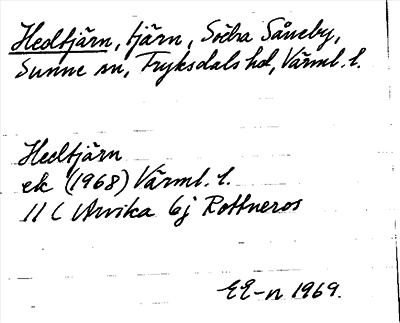 Hedtjärn, tjärn, Södra Såneby,
Sunne sn, Fryksdals hd, Värml. l.
Hedtjärn
ek (1968) Värml. l.
11 C Arvika 6j Rottneros
EE-n 1969.